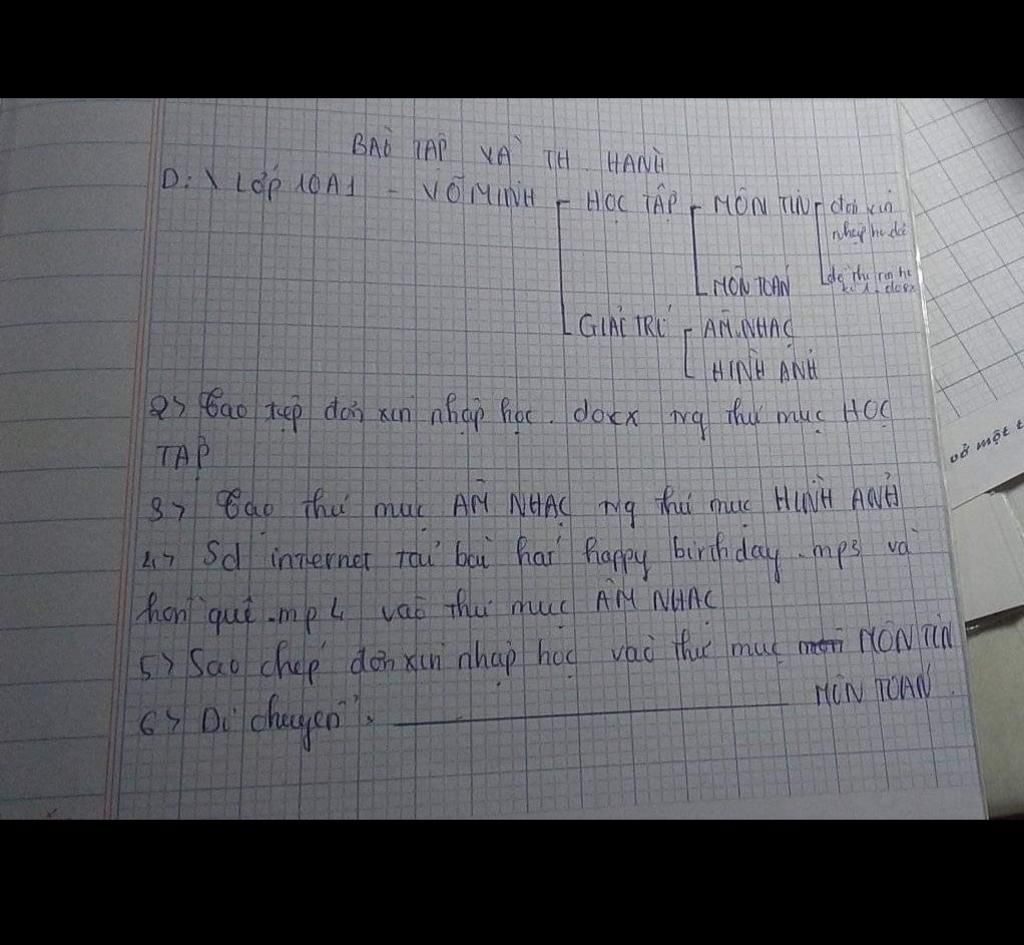 BAÌ TẬP VÀ TH. HÀNH
D:\ LỚP 10A1 - VÕ MINH - HỌC TẬP - MÔN TIN - đơn xin
nhập học
MÔN TOÁN đề thi tin học
kì 1. docx
GIẢI TRÍ - ÂM NHẠC
HÌNH ẢNH
2> Tạo tệp đơn xin nhập học. docx trg thư mục HỌC
TẬP
3> Tạo thư mục ÂM NHẠC trg thư mục HÌNH ẢNH
4> Sd internet tải bài hát happy birthday.mp3 và
hồn quê.mp4 vào thư mục ÂM NHẠC
5> Sao chép đơn xin nhập học vào thư mục MÔN TIN
6> Di chuyển MÔN TOÁN.
vở một t